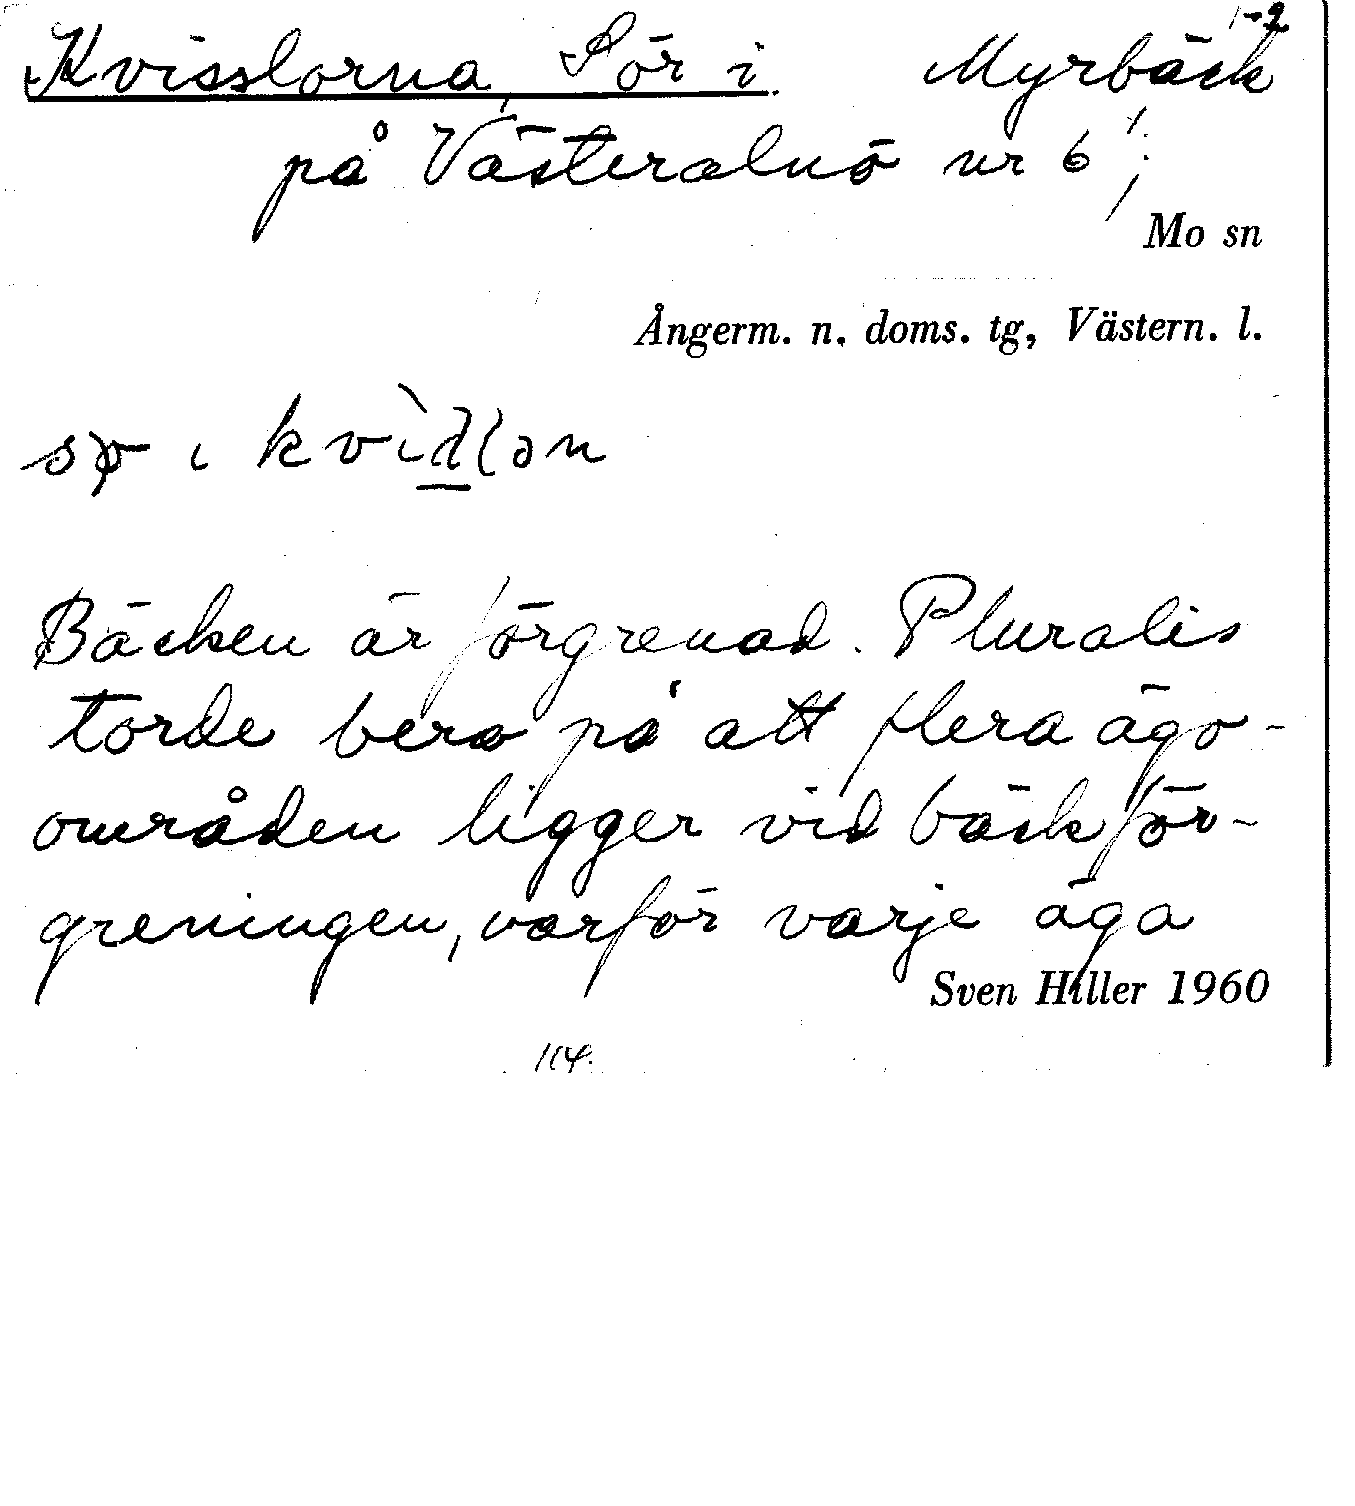 1-2
Kvisslorna, Sör i Myrbäck
på Västeralnö nr 6¹;
Mo sn
Ångerm. n. doms. tg, Västern. l.
i
Bäcken är förgrenad. Pluralis
torde bero på att flera ägo-
områden ligger vid bäckför-
greningen, varför varje äga
Sven Hiller 1960